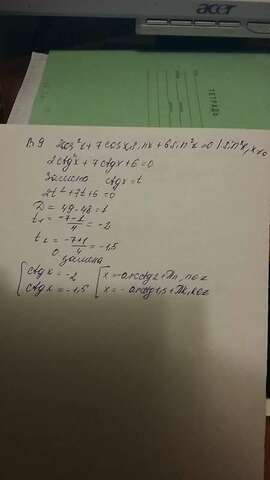 acer
ТЕТРАДЬ
В 9 2cos²x+7cosx sinx+6sin²x=0 |:sin²x, x≠0
2ctg²x+7ctgx+6=0
Замена ctgx=t
2t²+7t+6=0
D=49-48=1
t₁=(-7-1)/4=-2
t₂=(-7+1)/4=-1,5
замена
{ctgx=-2 [x=-arcctg2+πn, n∈z
{ctgx=-1,5 [x=-arcctg1,5+πk, k∈z